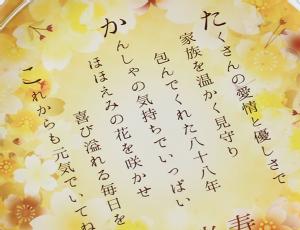 たくさんの愛情と優しさで
家族を温かく見守り
包んでくれた八十八年
かんしゃの気持ちでいっぱい
ほほえみの花を咲かせ
喜び溢れる毎日を
これからも元気でいてね
寿